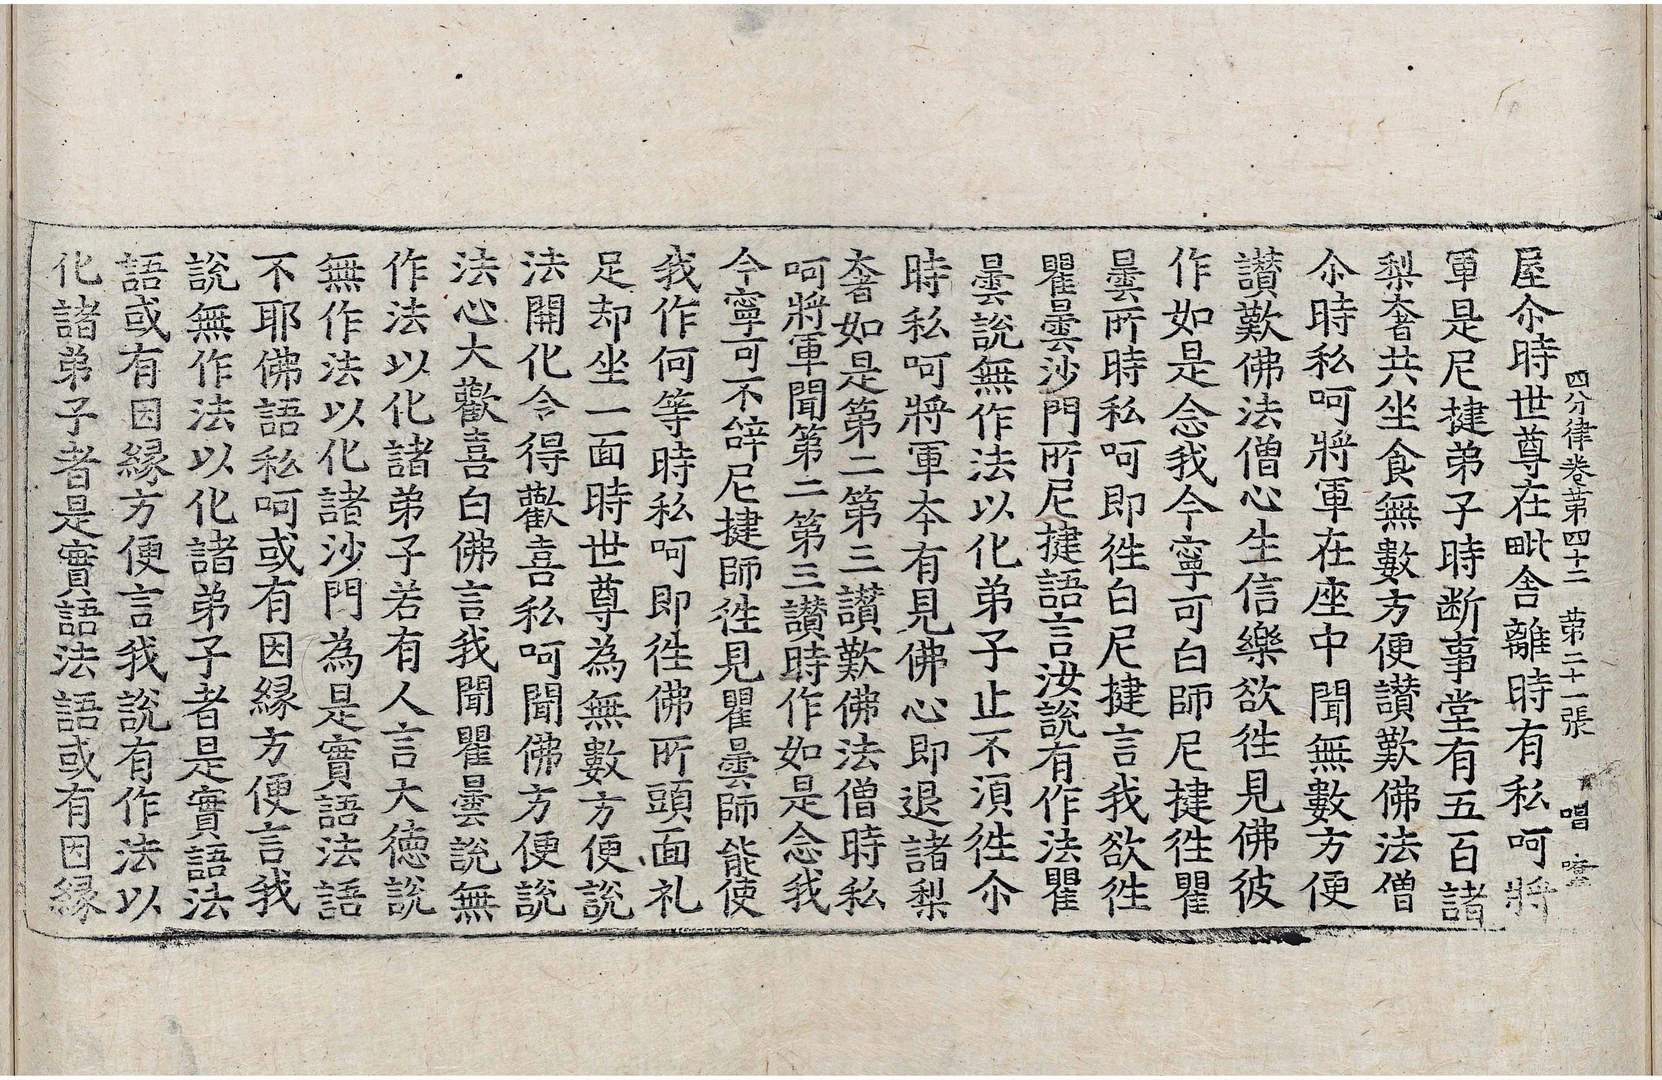 四分律卷苐四十二 苐二十一張 唱
屋尒時世尊在毗舍離時有私呵將
軍是尼揵弟子時断事堂有五百諸
梨奢共坐食無數方便讃歎佛法僧
尒時私呵將軍在座中聞無數方便
讃歎佛法僧心生信樂欲徃見佛彼
作如是念我今寧可白師尼揵徃瞿
曇所時私呵即徃白尼揵言我欲徃
瞿曇沙門所尼揵語言汝說有作法瞿
曇說無作法以化弟子止不湏徃尒
時私呵將軍夲有見佛心即退諸梨
奢如是第二第三讃歎佛法僧時私
呵將軍聞第二第三讃時作如是念我
今寧可不辝尼揵師徃見瞿曇師能使
我作何等時私呵即徃佛所頭面礼
足却坐一面時世尊為無數方便說
法開化令得歡喜私呵聞佛方便說
法心大歡喜白佛言我聞瞿曇說無
作法以化諸弟子若有人言大德說
無作法以化諸沙門為是實語法語
不耶佛語私呵或有因緣方便言我
說無作法以化諸弟子者是實語法
語或有因緣方便言我說有作法以
化諸弟子者是實語法語或有因緣